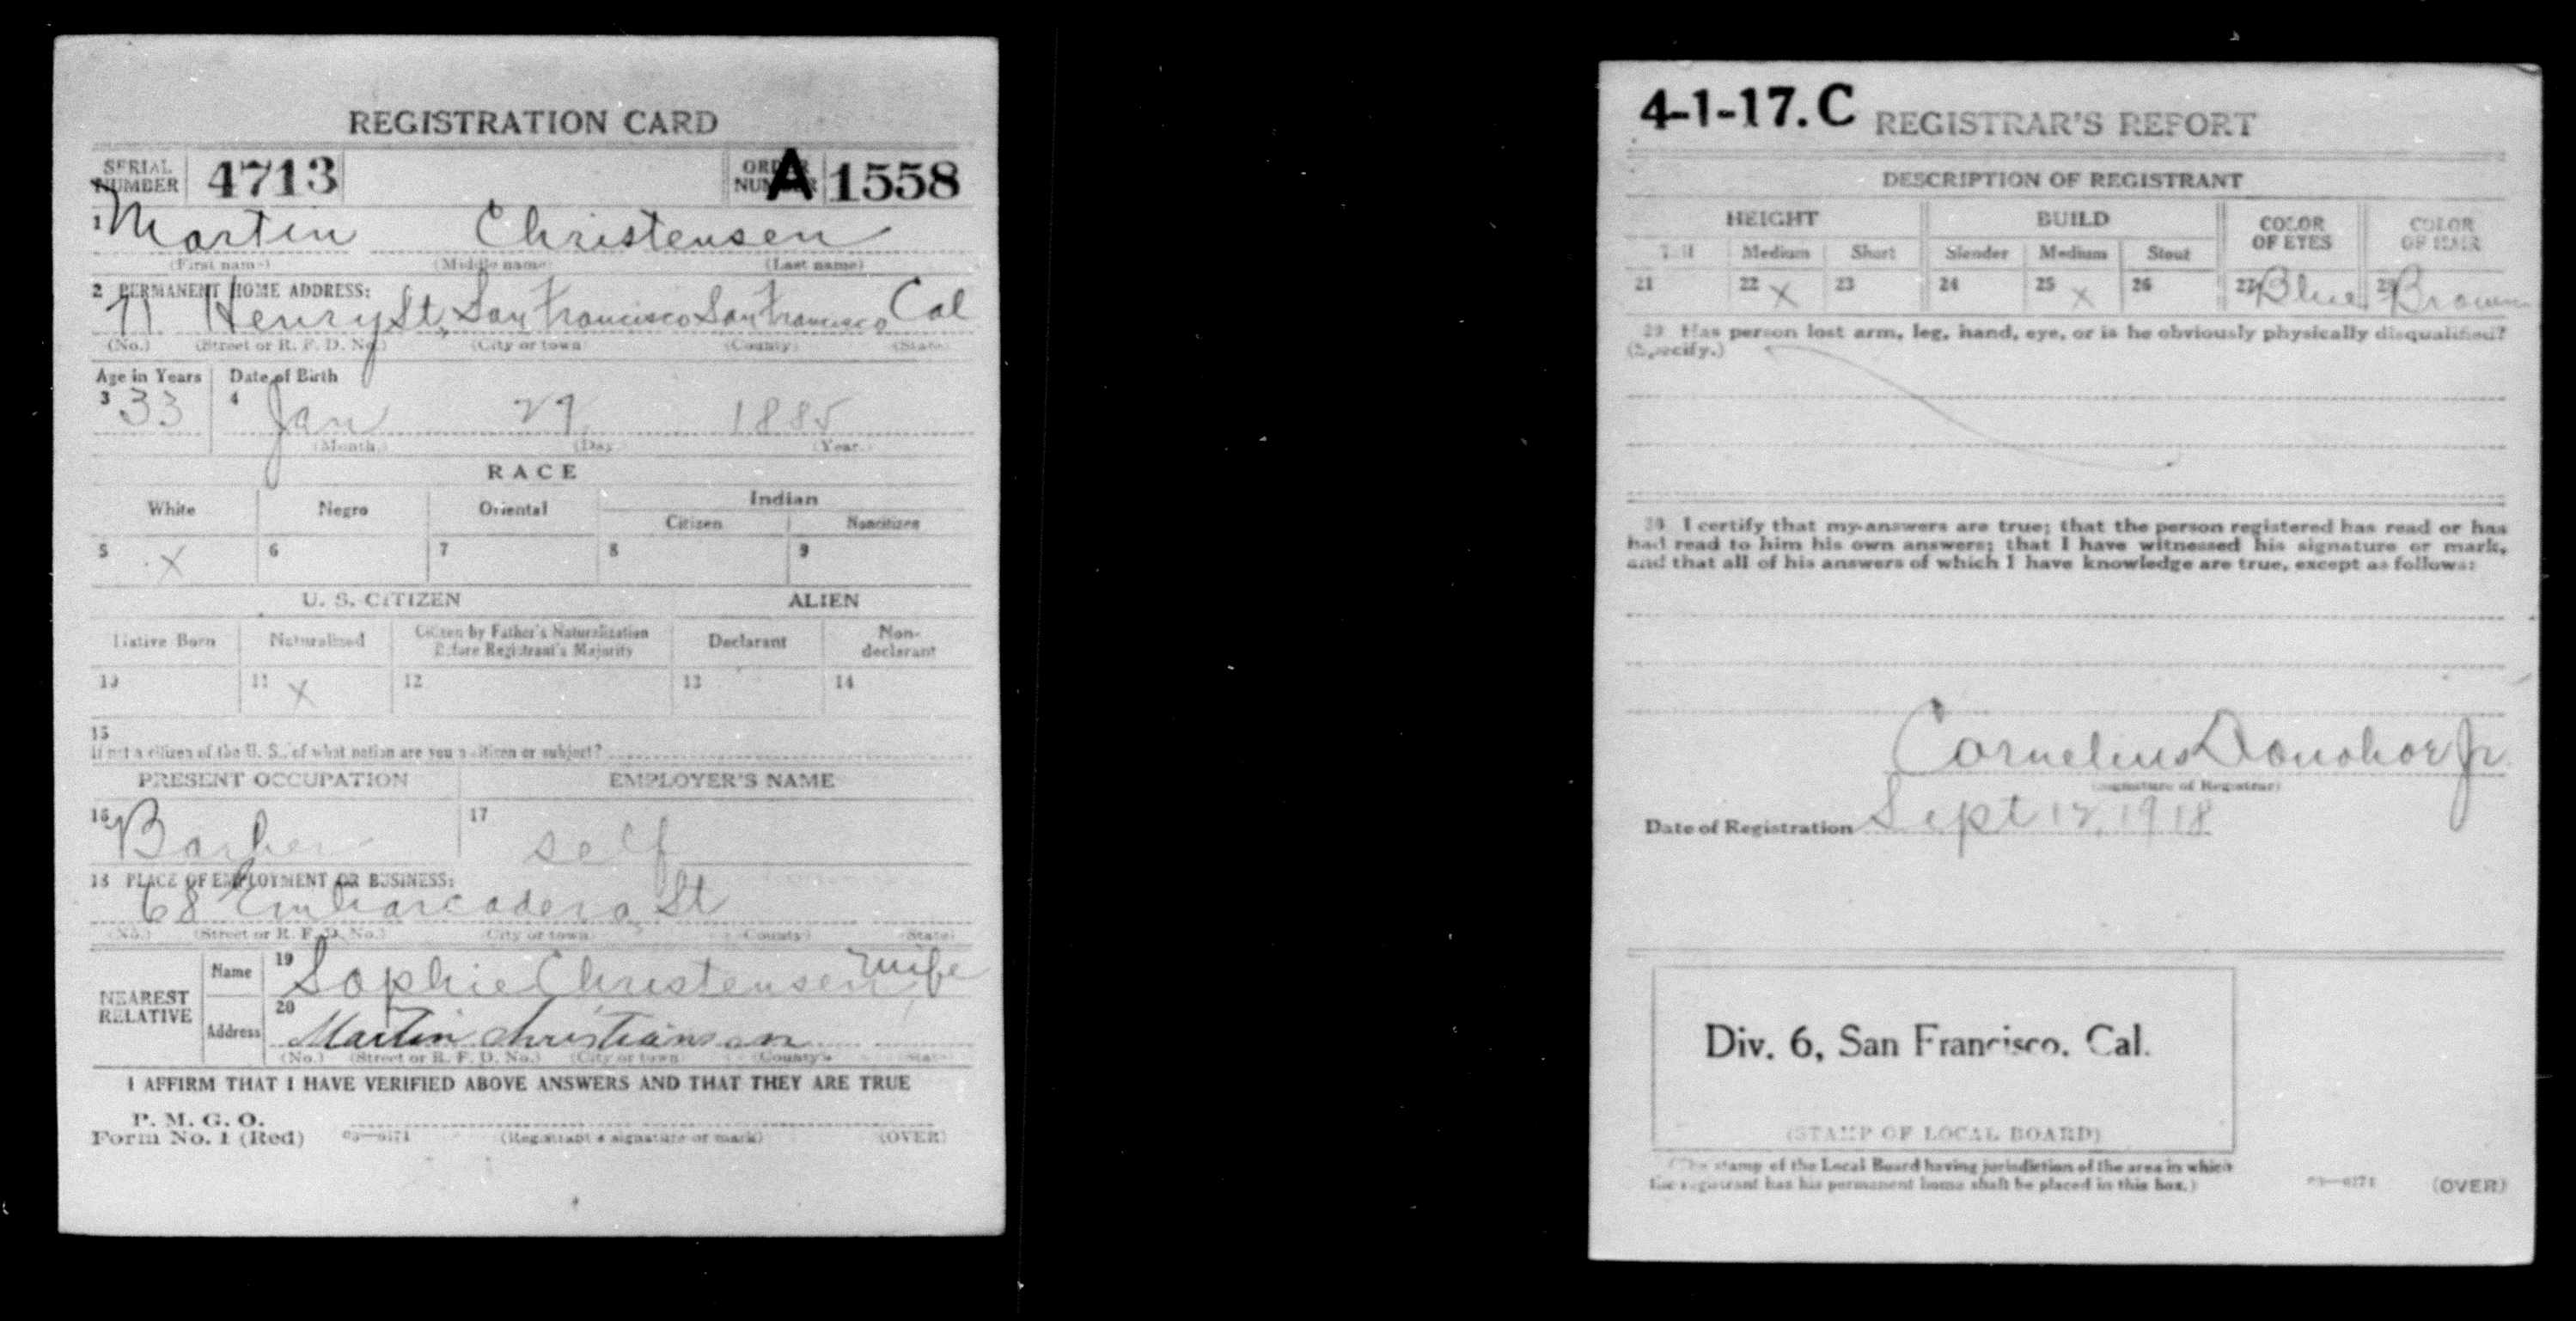 REGISTRATION CARD
SERIAL NUMBER 4713 ORDER NUMBER A 1558
1 Martin Christensen
(First name) (Middle name) (Last name)
2 PERMANENT HOME ADDRESS:
71 Henry St, San Francisco San Francisco Cal
(No.) (Street or R. F. D. No.) (City or town) (County) (State)
Age in Years Date of Birth
3 33 4 Jan 29, 1885
(Month.) (Day.) (Year.)
RACE
White Negro Oriental Indian
Citizen Noncitizen
5 X 6 7 8 9
U. S. CITIZEN ALIEN
Native Born Naturalized Citizen by Father's Naturalization Before Registrant's Majority Declarant Non-declarant
10 11 X 12 13 14
15
If not a citizen of the U. S., of what nation are you a citizen or subject?
PRESENT OCCUPATION EMPLOYER'S NAME
16 Barber 17 self
18 PLACE OF EMPLOYMENT OR BUSINESS:
68 Embarcadero St
(No.) (Street or R. F. D. No.) (City or town) (County) (State)
NEAREST RELATIVE Name 19 Sophie Christensen wife
Address 20 Martin Christianson
(No.) (Street or R. F. D. No.) (City or town) (County) (State)
I AFFIRM THAT I HAVE VERIFIED ABOVE ANSWERS AND THAT THEY ARE TRUE
P. M. G. O.
Form No. 1 (Red) 03—6171 (Registrant's signature or mark) (OVER)
4-1-17. C REGISTRAR'S REPORT
DESCRIPTION OF REGISTRANT
HEIGHT BUILD COLOR OF EYES COLOR OF HAIR
Tall Medium Short Slender Medium Stout
21 22 X 23 24 25 X 26 27 Blue 28 Brown
29 Has person lost arm, leg, hand, eye, or is he obviously physically disqualified?
(Specify.)
30 I certify that my answers are true; that the person registered has read or has
had read to him his own answers; that I have witnessed his signature or mark,
and that all of his answers of which I have knowledge are true, except as follows:
Cornelius Donohoe Jr
(Signature of Registrar)
Date of Registration Sept 12, 1918
Div. 6, San Francisco, Cal.
(STAMP OF LOCAL BOARD)
(The stamp of the Local Board having jurisdiction of the area in which
the registrant has his permanent home shall be placed in this box.)
03—6171 (OVER)